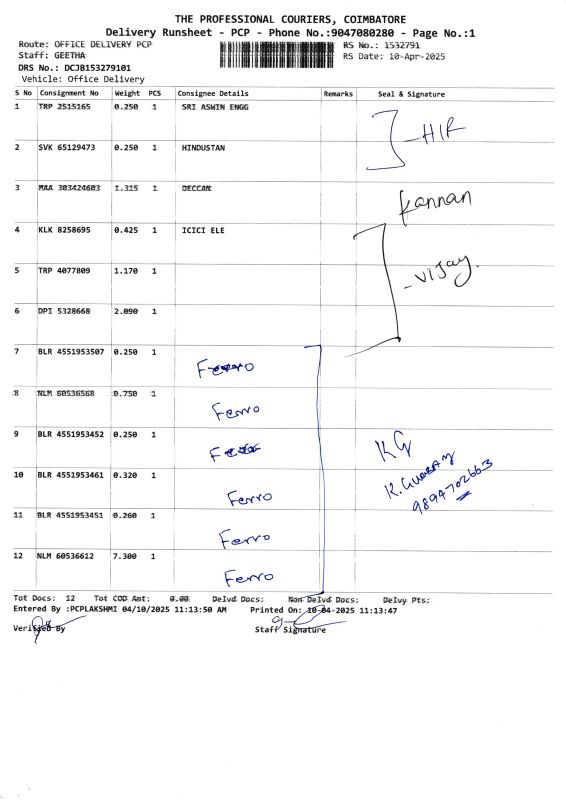 THE PROFESSIONAL COURIERS, COIMBATORE
Delivery Runsheet - PCP - Phone No.:9047080280 - Page No.:1
Route: OFFICE DELIVERY PCP
RS No.: 1532791
Staff: GEETHA
RS Date: 10-Apr-2025
DRS No.: DCJB153279101
Vehicle: Office Delivery
S No Consignment No Weight PCS Consignee Details Remarks Seal & Signature
1 TRP 2515165 0.250 1 SRI ASWIN ENGG
2 SVK 65129473 0.250 1 HINDUSTAN
3 MAA 303424603 1.315 1 DECCAN
Kannan
4 KLK 8258695 0.425 1 ICICI ELE
5 TRP 4077809 1.170 1
-Vijay.
6 DPI 5328668 2.090 1
7 BLR 4551953507 0.250 1 Ferro
8 NLM 60536568 0.750 1 Ferro
9 BLR 4551953452 0.250 1
KG
10 BLR 4551953461 0.320 1 Ferro
9894702663
11 BLR 4551953451 0.260 1 Ferro
12 NLM 60536612 7.300 1 Ferro
Tot Docs: 12 Tot COD Amt: 0.00 Delvd Docs: Non Delvd Docs: Delvy Pts:
Entered By :PCPLAKSHMI 04/10/2025 11:13:50 AM Printed On: 10-04-2025 11:13:47
Verified By Staff Signature